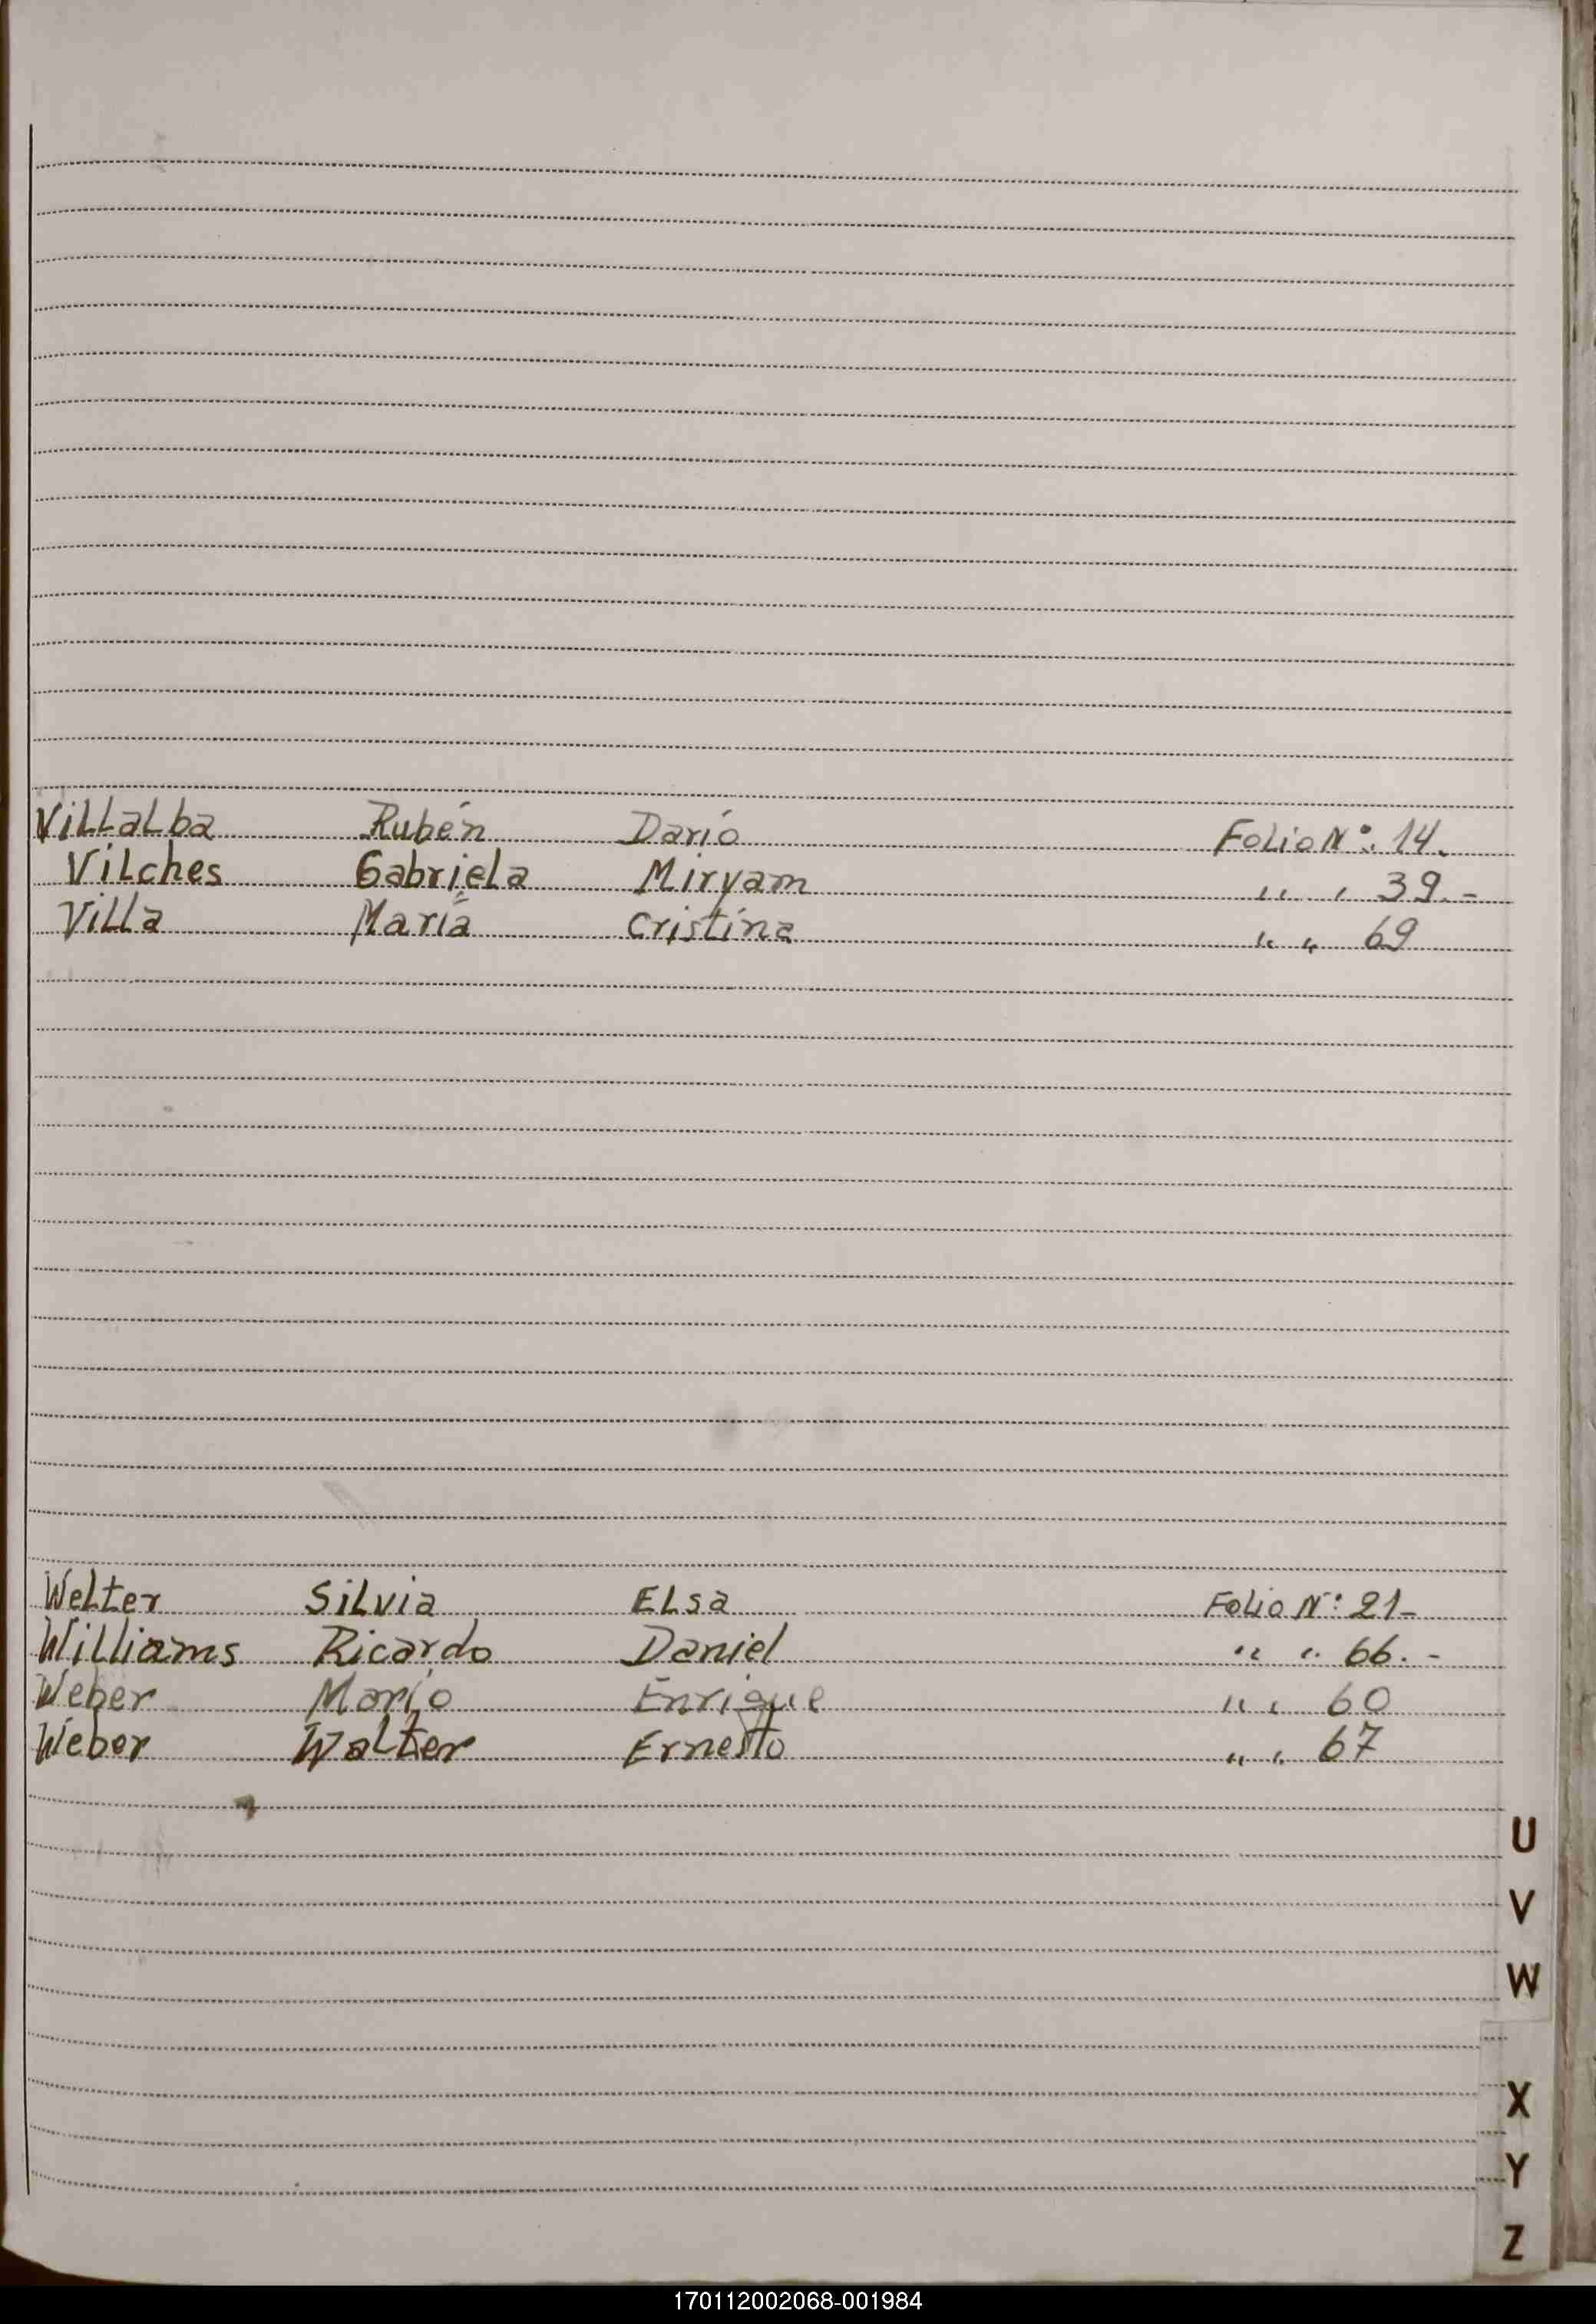 Villalba Rubén Darío Folio Nº: 14.
Vilches Gabriela Miryam " " 39.-
Villa María Cristina " " 69
Welter Silvia Elsa Folio Nº: 21-
Williams Ricardo Daniel " " 66.-
Weber Mario Enrique " " 60
Weber Walter Ernesto " " 67
U
V
W
X
Y
Z
170112002068-001984